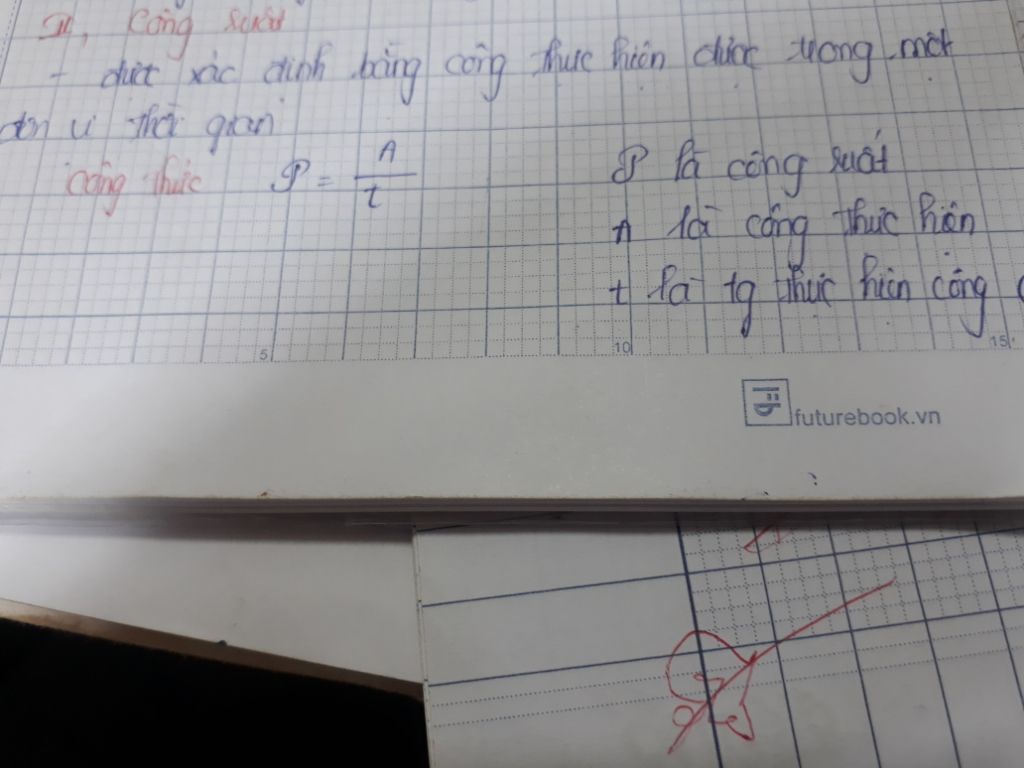 II, Công suất
- được xác định bằng công thực hiện được trong một
đơn vị thời gian
Công thức P = A / t
P là công suất
A là công thực hiện
t là tg thực hiện công
5 10 15
futurebook.vn